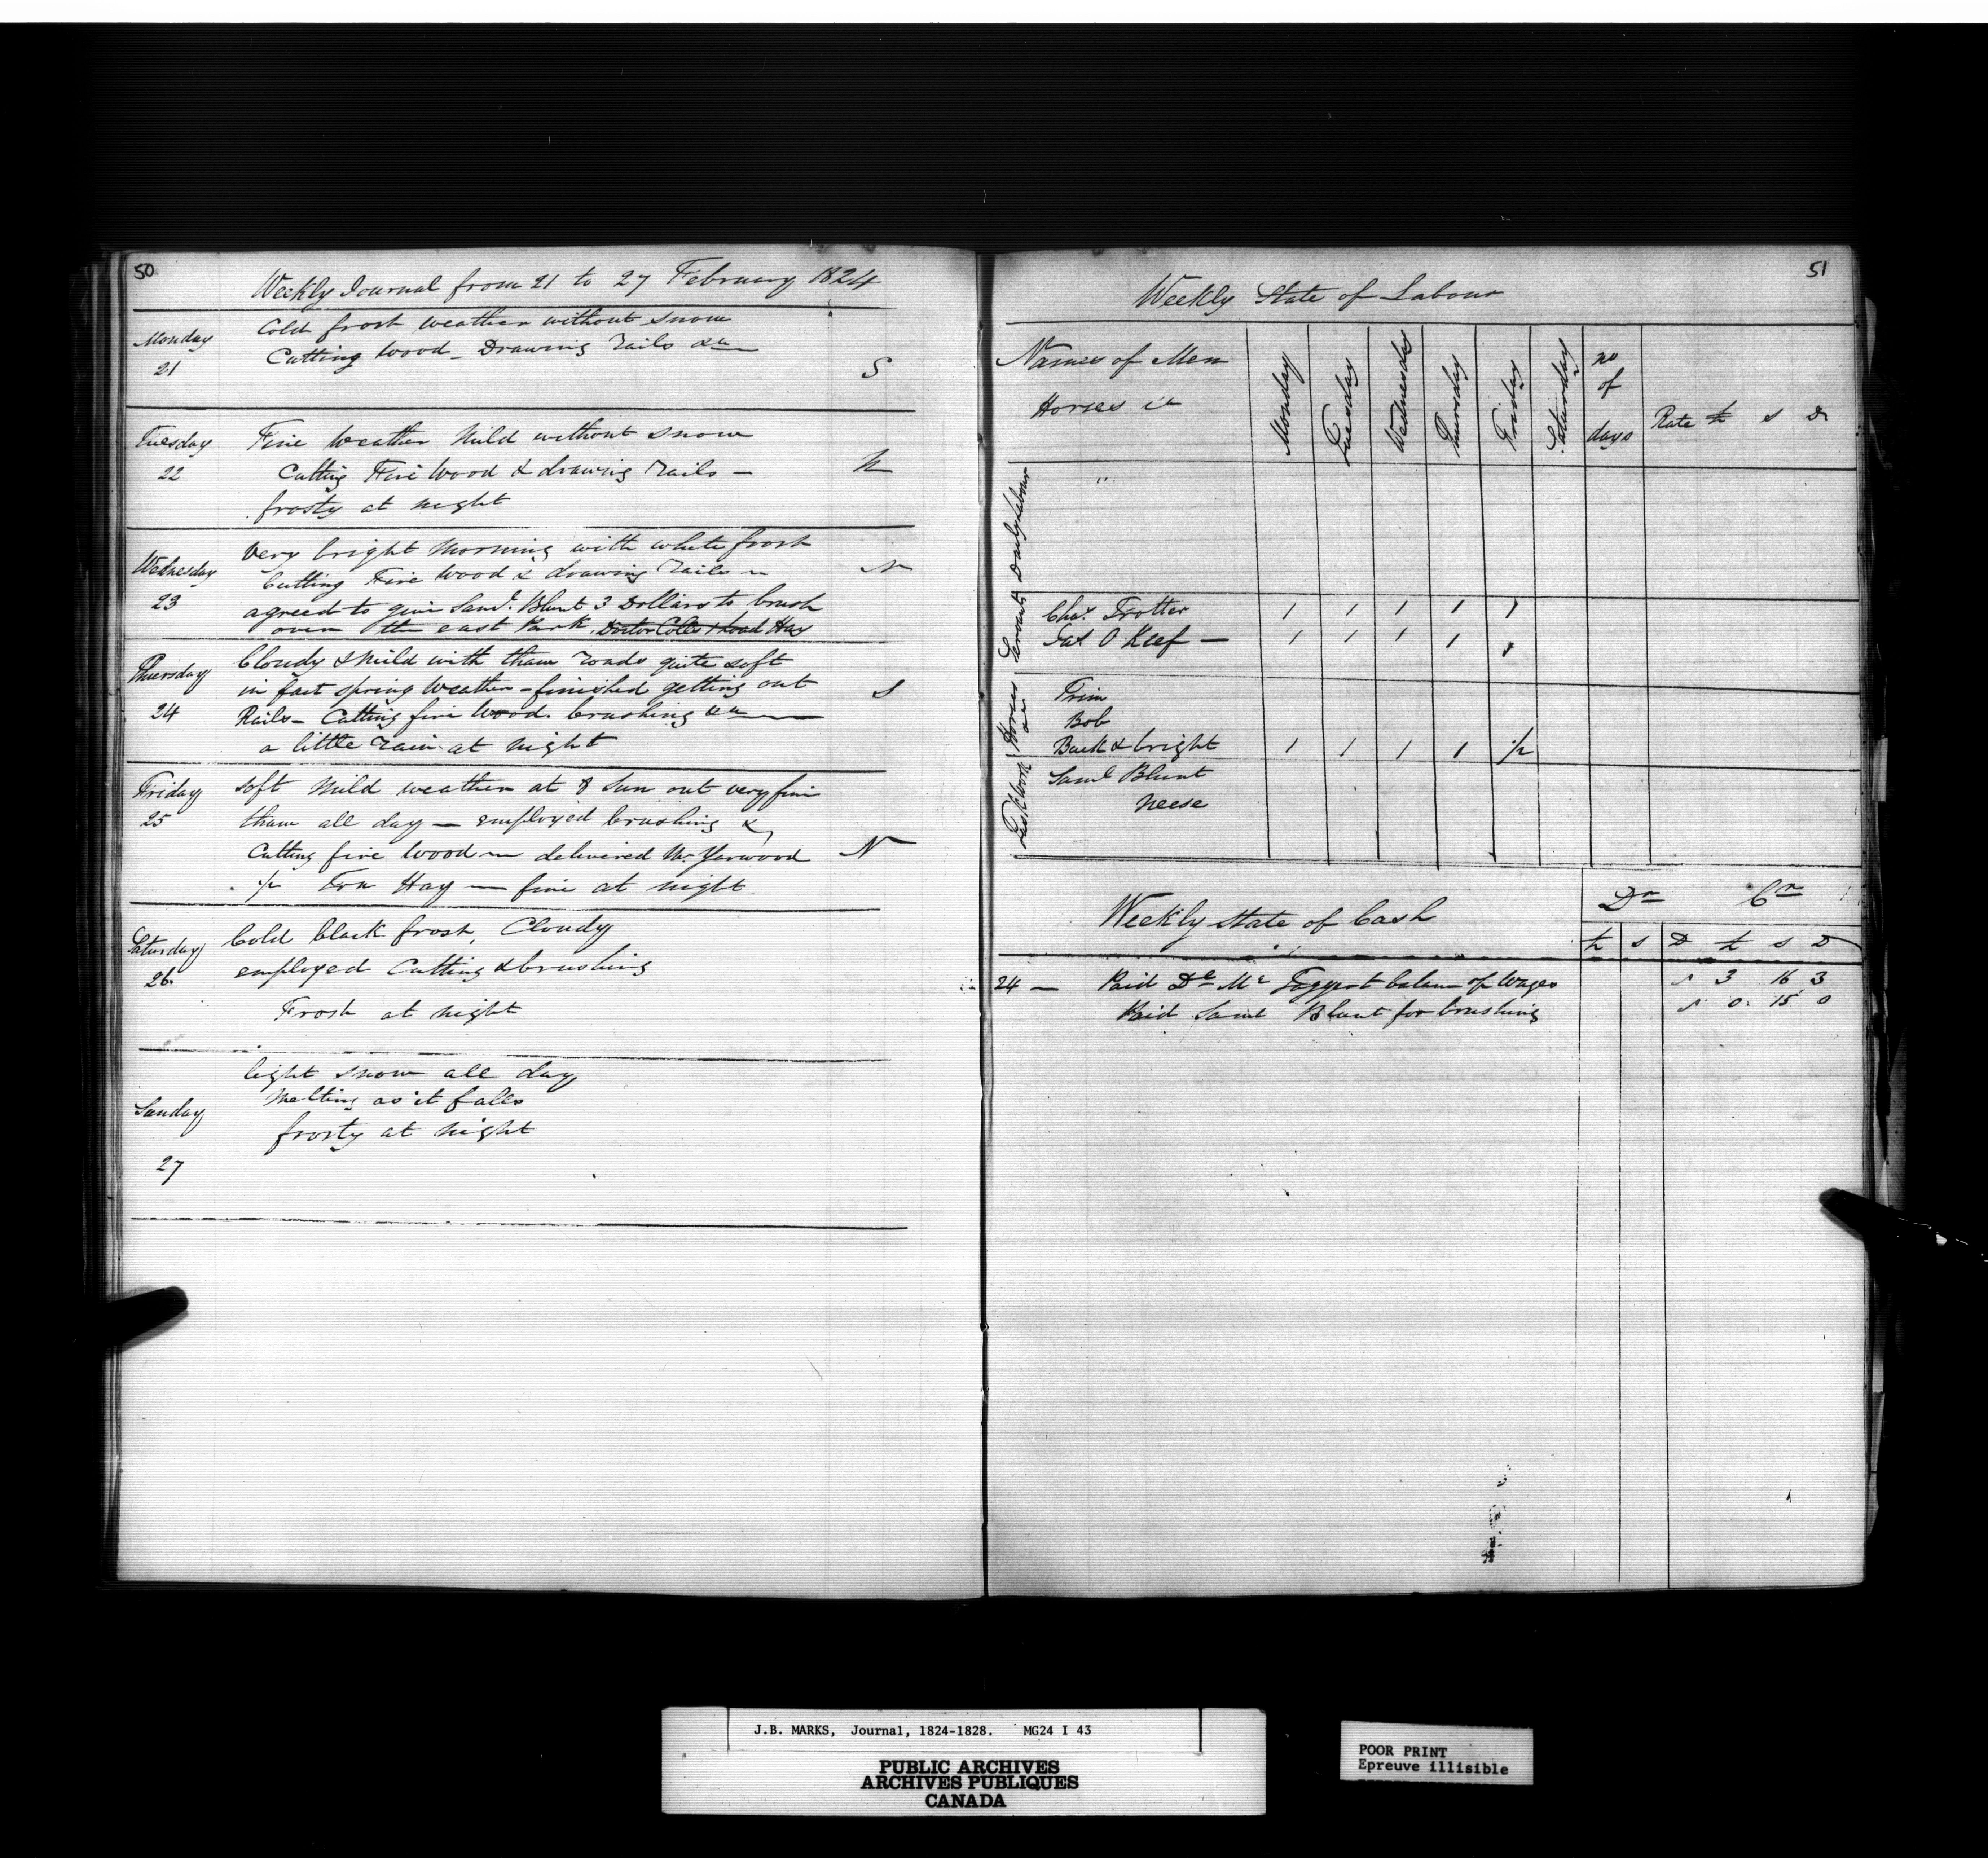 50
Weekly Journal from 21 to 27 February 1824
Monday
21
Cold frost weather without snow
Cutting wood - Drawing rails &c
S
Tuesday
22
Fine Weather Mild without snow
Cutting Fire Wood & drawing rails -
frosty at night
N
Wednesday
23
Very bright Morning with white frost
Cutting Fire Wood & drawing rails
N
agreed to give Saml. Blunt 3 Dollars to brush
over the east Park Doctor Coles load Hay
Thursday
24
Cloudy & Mild with thaw roads quite soft
in fact spring Weather - finished getting out
S
Rails - Cutting fire Wood. brushing &c
a little rain at night
Friday
25
soft Mild weather at 8 Sun out very fine
thaw all day - employed brushing &
Cutting fire Wood - delivered Mr Yarwood
N
1/2 Ton Hay - fine at night
Saturday
26.
Cold black frost, Cloudy
employed Cutting & brushing
Frost at night
Sunday
27
light snow all day
Melting as it falls
frosty at night
51
Weekly State of Labour
Names of Men
Horses &c
Monday
Tuesday
Wednesday
Thursday
Friday
Saturday
no
of
days
Rate £ s D
Daily Labour
"
Servants
Chas. Trotter 1 1 1 1 1
Pat O Keef - 1 1 1 1 1
Horses
Trim
Bob
Buck & bright 1 1 1 1 1/2
Task Work
Saml Blunt
neese
Weekly state of Cash
Dr Cr
£ s D £ s D
24 - Paid Mc balance of Wages 3 16 3
Paid Saml Blunt for brushing 0 15 0
J.B. MARKS, Journal, 1824-1828. MG24 I 43
PUBLIC ARCHIVES
ARCHIVES PUBLIQUES
CANADA
POOR PRINT
Epreuve illisible